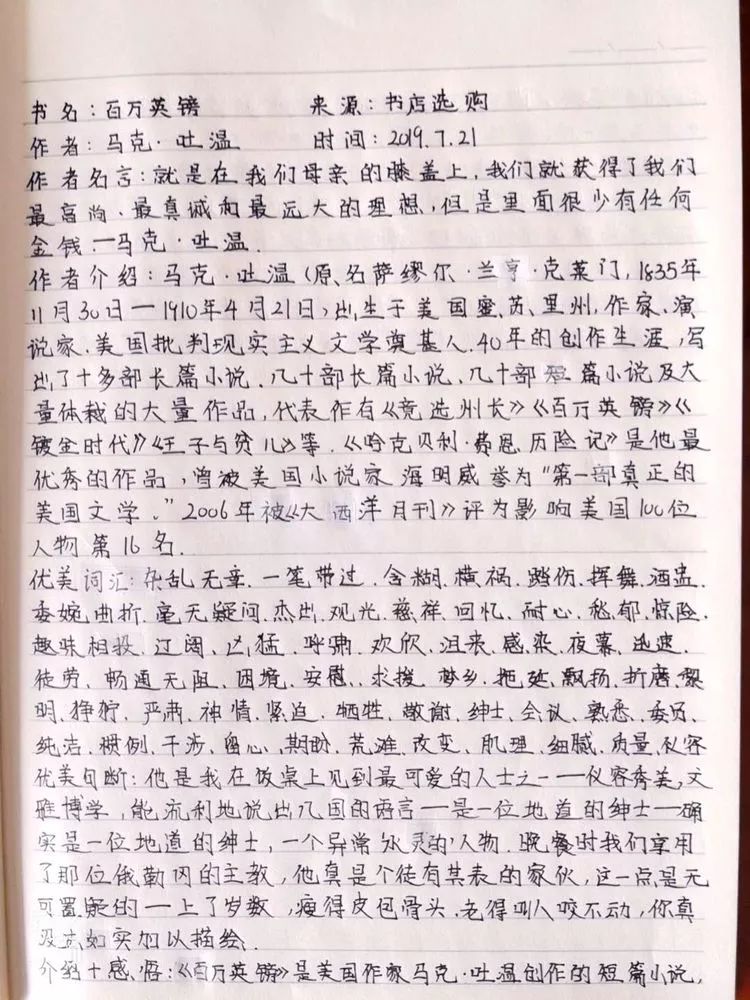 书名:百万英镑 来源:书店选购
作者:马克·吐温 时间:2019.7.21
作者名言:就是在我们母亲的膝盖上,我们就获得了我们
最高尚·最真诚和最远大的理想,但是里面很少有任何
金钱.—马克·吐温.
作者介绍:马克·吐温(原名萨缪尔·兰亨·克莱门,1835年
11月30日—1910年4月21日,出生于美国蜜苏里州,作家、演
说家.美国批判现实主义文学奠基人.40年的创作生涯,写
出了十多部长篇小说.几十部长篇小说、几十部短篇小说及大
量体裁的大量作品,代表作有《竞选州长》《百万英镑》《
镀金时代》《王子与贫儿》等.《哈克贝利·费恩历险记》是他最
优秀的作品,曾被美国小说家海明威誉为“第一部真正的
美国文学.”2006年被《大西洋月刊》评为影响美国100位
人物第16名.
优美词汇:杂乱无章.一笔带过.含糊.横祸.踏伤.挥舞.洒盅.
委婉曲折.毫无疑问.杰出.观光.慈祥.回忆.耐心.愁郁.惊险.
趣味相投.辽阔、凶猛.呼鼎.欢欣.沮来.感染.夜幕.迅速.
徒劳.畅通无阻.困境.安慰.求援.梦乡.拖延.飘扬.折磨.黎
明.狰狞.严肃.神情.紧迫.牺牲.敬谢.绅士.会议.熟悉.委员.
纯洁.惯例.干涉.留心.期盼.荒滩.改变.肌理.细腻.质量.从容
优美句断:他是我在饭桌上见到最可爱的人士之一——仪容秀美,文
雅博学,能流利地说出几国的语言—是一位地道的绅士—确
实是一位地道的绅士,一个异常 灵的人物.晚餐时我们享用
了那位俄勒冈的主教,他真是个徒有其表的家伙,这一点是无
可置疑的—上了岁数,瘦得皮包骨头.老得叫人咬不动,你真
没法如实加以描绘.
介绍+感悟:《百万英镑》是美国作家马克·吐温创作的短篇小说,